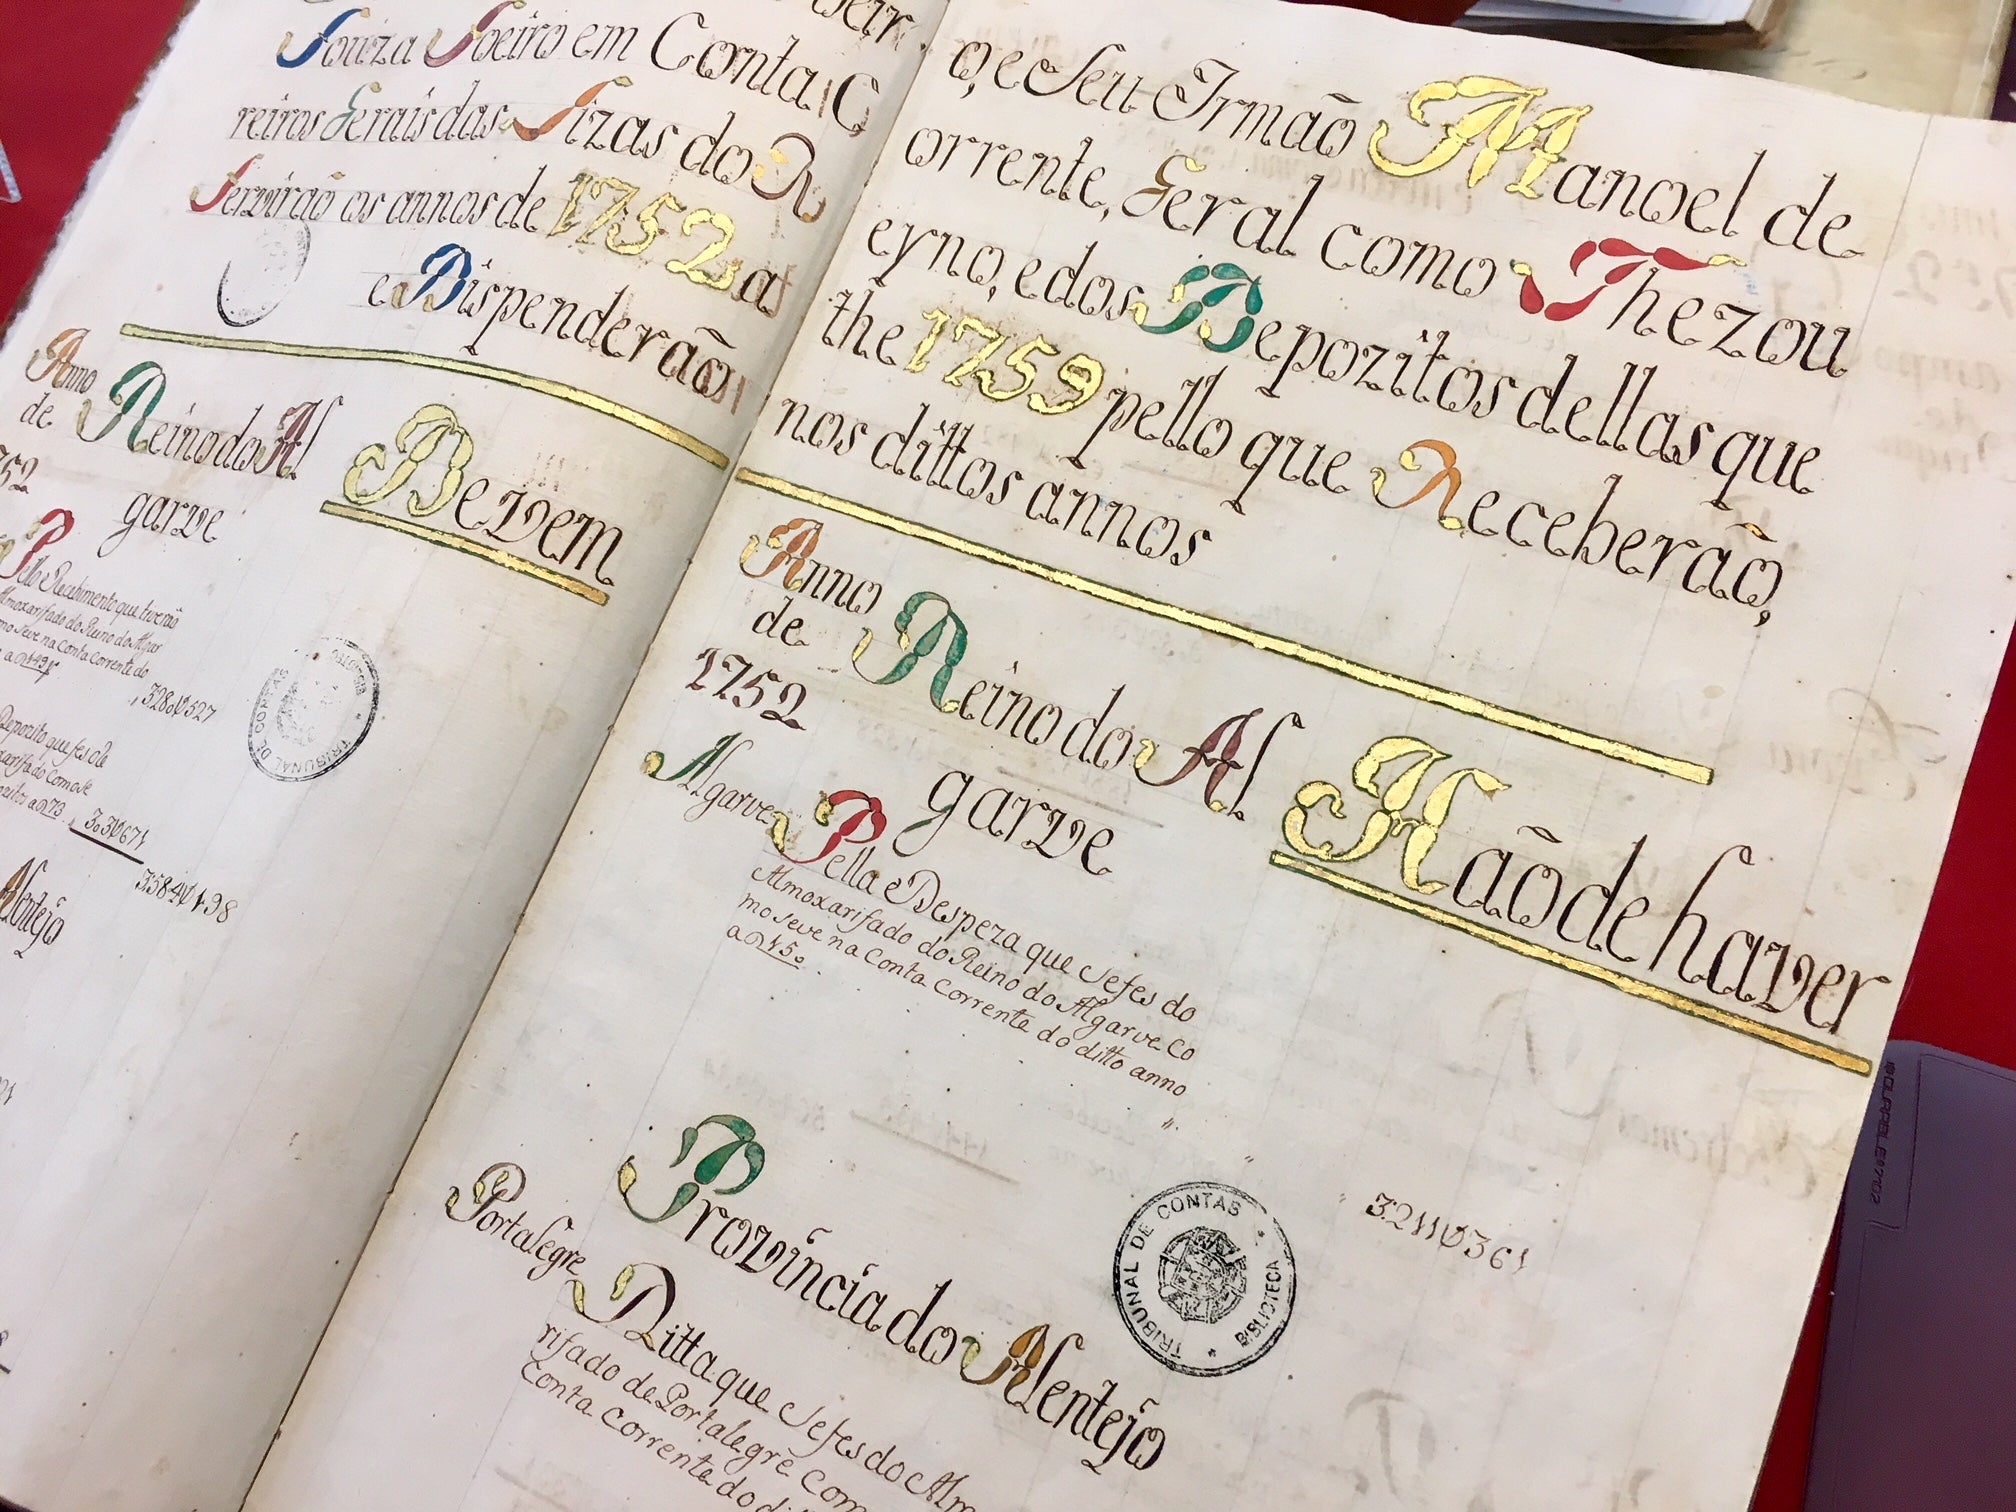 Souza Soeiro em Conta C
reiros Gerais das Sizas do R
Servirão os annos de 1752 a
e Dispenderão
Anno
de
752
Reino do Al
garve
Devem
Pello Recebimento que tiverão
Almoxarifado do Reino do Algar
mo se ve na Conta Corrente do
328∘₵527
Depozito que fes o
xarifado como se
a 73
3∘3₵671
3584₵198
Alentejo
TRIBUNAL DE CONTAS
o, e Seu Irmão Manoel de
orrente, Geral como Thezou
eyno, e dos Depozitos dellas que
the 1759 pello que Receberão,
nos dittos annos
Anno
de
1752
Reino do Al
garve
Hão de haver
Algarve
Pella e Despeza que se fes do
Almoxarifado do Reino do Algarve co
mo se ve na Conta Corrente do ditto anno
3211₵361
Provincia do Alentejo
TRIBUNAL DE CONTAS
BIBLIOTECA
Portalegre
Ditta que se fes do Alm
rifado de Portalegre com
Conta Corrente do